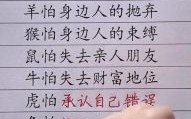 羊怕身边人的抛弃
猴怕身边人的束缚
鼠怕失去亲人朋友
牛怕失去财富地位
虎怕承认自己错误